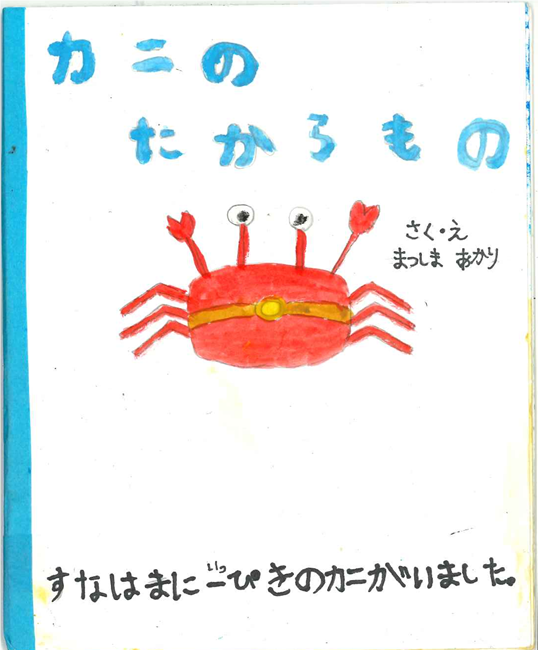 カニの
たからもの
さく・え
まつしま あかり
すなはまに一ぴきのカニがいました。
いっ